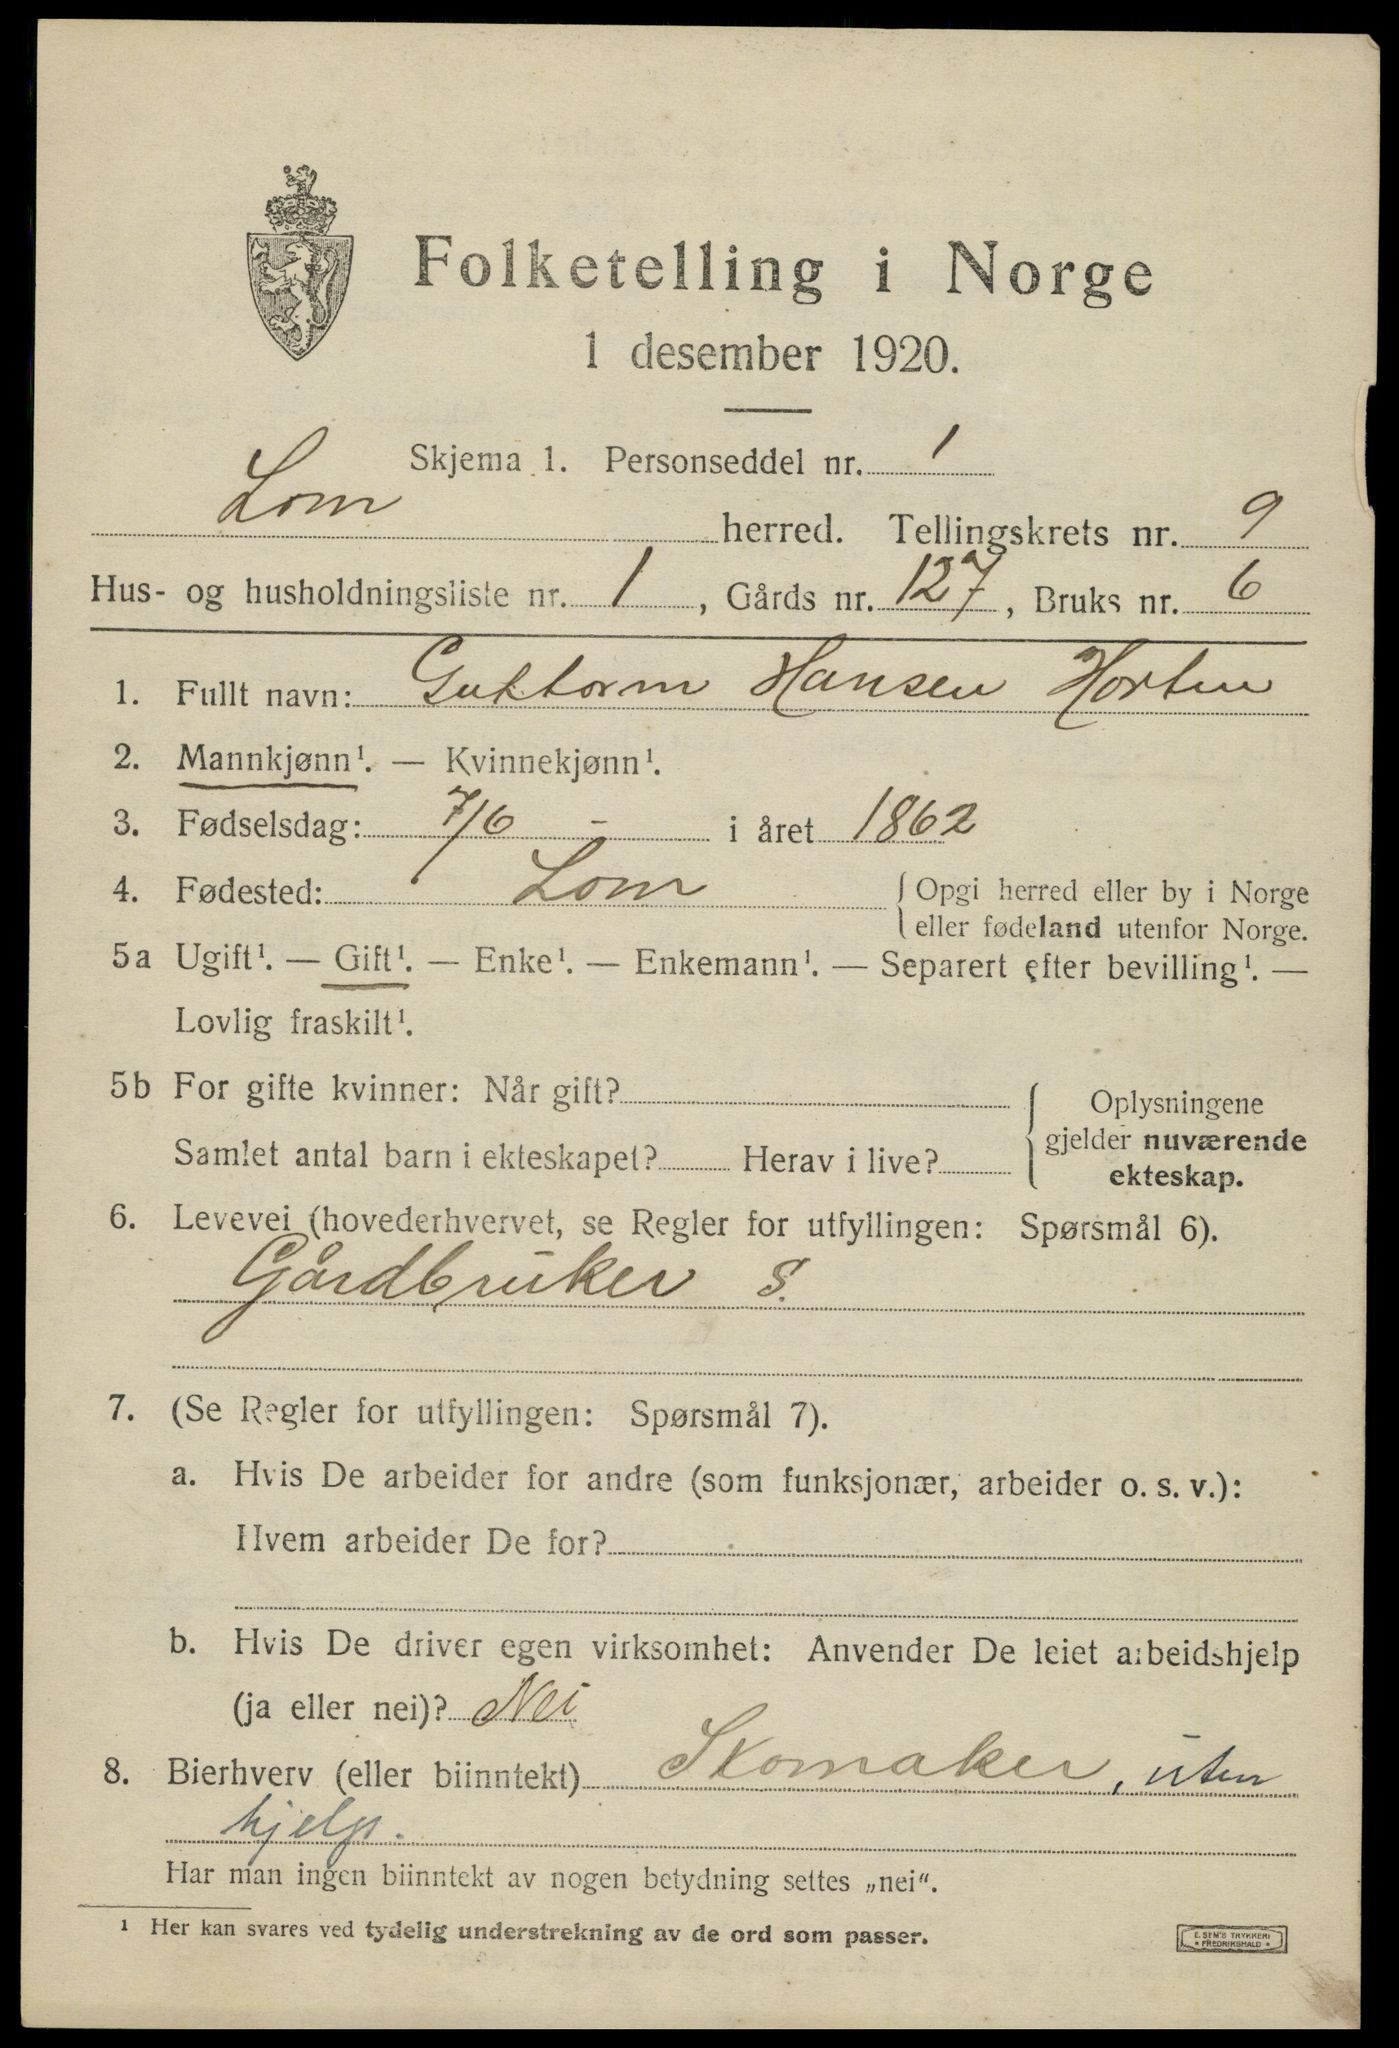 Folketelling i Norge
1 desember 1920.
Skjema 1. Personseddel nr. 1
Lom herred. Tellingskrets nr. 9
Hus- og husholdningsliste nr. 1, Gårds nr. 127, Bruks nr. 6
1. Fullt navn: Guttorm Hansen Horten
2. Mannkjønn¹. — Kvinnekjønn¹.
3. Fødselsdag: 7/6 - i året 1862
4. Fødested: Lom { Opgi herred eller by i Norge
eller fødeland utenfor Norge.
5a Ugift¹. — Gift¹. — Enke¹. — Enkemann¹. — Separert efter bevilling¹. —
Lovlig fraskilt¹.
5b For gifte kvinner: Når gift?
Samlet antal barn i ekteskapet? Herav i live?
{ Oplysningene
gjelder nuværende
ekteskap.
6. Levevei (hovederhvervet, se Regler for utfyllingen: Spørsmål 6).
Gårdbruker S.
7. (Se Regler for utfyllingen: Spørsmål 7).
a. Hvis De arbeider for andre (som funksjonær, arbeider o. s. v.):
Hvem arbeider De for?
b. Hvis De driver egen virksomhet: Anvender De leiet arbeidshjelp
(ja eller nei)? Nei
8. Bierhverv (eller biinntekt) Skomaker, uten
hjelp.
Har man ingen biinntekt av nogen betydning settes „nei“.
¹ Her kan svares ved tydelig understrekning av de ord som passer.
E. SEM'S TRYKKERI
• FREDRIKSHALD •